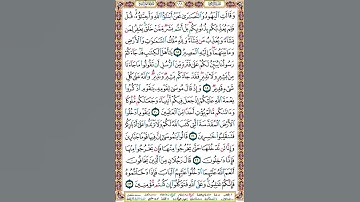 وَقَالَتِ ٱلْيَهُودُ وَٱلنَّصَٰرَىٰ نَحْنُ أَبْنَٰٓؤُا۟ ٱللَّهِ وَأَحِبَّٰٓؤُهُۥ قُلْ
فَلِمَ يُعَذِّبُكُم بِذُنُوبِكُم بَلْ أَنتُم بَشَرٌ مِّمَّنْ خَلَقَ يَغْفِرُ لِمَن
يَشَآءُ وَيُعَذِّبُ مَن يَشَآءُ وَلِلَّهِ مُلْكُ ٱلسَّمَٰوَٰتِ وَٱلْأَرْضِ
وَمَا بَيْنَهُمَا وَإِلَيْهِ ٱلْمَصِيرُ ١٨ يَٰٓأَهْلَ ٱلْكِتَٰبِ قَدْ جَآءَكُمْ
رَسُولُنَا يُبَيِّنُ لَكُمْ عَلَىٰ فَتْرَةٍ مِّنَ ٱلرُّسُلِ أَن تَقُولُوا۟ مَا جَآءَنَا
مِنۢ بَشِيرٍ وَلَا نَذِيرٍ فَقَدْ جَآءَكُم بَشِيرٌ وَنَذِيرٌ وَٱللَّهُ عَلَىٰ كُلِّ
شَىْءٍ قَدِيرٌ ١٩ وَإِذْ قَالَ مُوسَىٰ لِقَوْمِهِۦ يَٰقَوْمِ ٱذْكُرُوا۟
نِعْمَةَ ٱللَّهِ عَلَيْكُمْ إِذْ جَعَلَ فِيكُمْ أَنۢبِيَآءَ وَجَعَلَكُم مُّلُوكًا
وَءَاتَىٰكُم مَّا لَمْ يُؤْتِ أَحَدًا مِّنَ ٱلْعَٰلَمِينَ ٢٠ يَٰقَوْمِ ٱدْخُلُوا۟
ٱلْأَرْضَ ٱلْمُقَدَّسَةَ ٱلَّتِى كَتَبَ ٱللَّهُ لَكُمْ وَلَا تَرْتَدُّوا۟ عَلَىٰٓ أَدْبَارِكُمْ
فَتَنقَلِبُوا۟ خَٰسِرِينَ ٢١ قَالُوا۟ يَٰمُوسَىٰٓ إِنَّ فِيهَا قَوْمًا جَبَّارِينَ
وَإِنَّا لَن نَّدْخُلَهَا حَتَّىٰ يَخْرُجُوا۟ مِنْهَا فَإِن يَخْرُجُوا۟ مِنْهَا
فَإِنَّا دَٰخِلُونَ ٢٢ قَالَ رَجُلَانِ مِنَ ٱلَّذِينَ يَخَافُونَ
أَنْعَمَ ٱللَّهُ عَلَيْهِمَا ٱدْخُلُوا۟ عَلَيْهِمُ ٱلْبَابَ فَإِذَا دَخَلْتُمُوهُ
فَإِنَّكُمْ غَٰلِبُونَ وَعَلَى ٱللَّهِ فَتَوَكَّلُوٓا۟ إِن كُنتُم مُّؤْمِنِينَ ٢٣